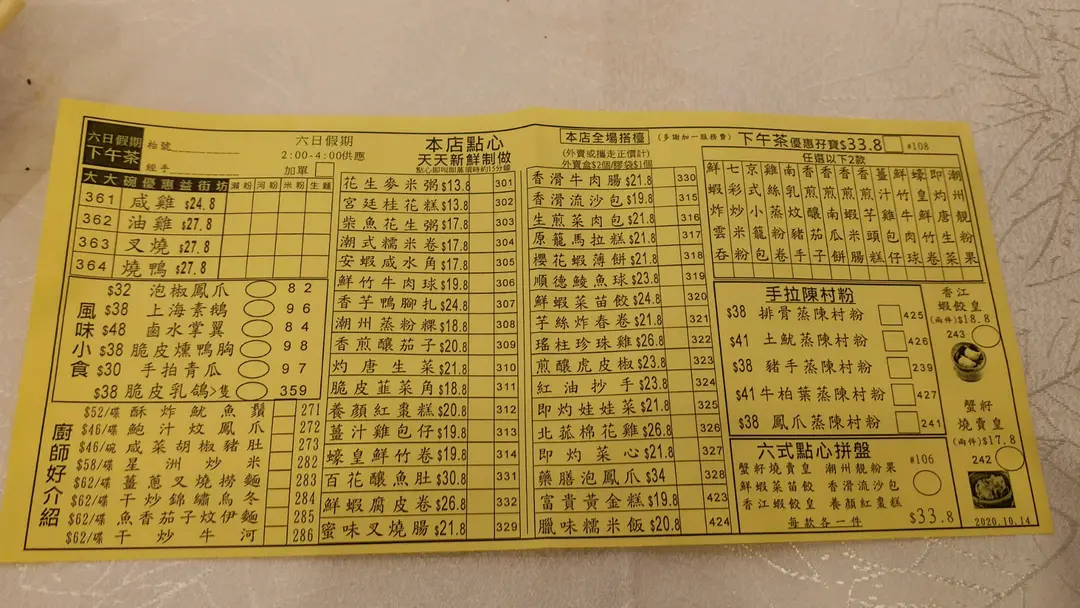 六日假期
下午茶
枱號
經手
六日假期
2:00-4:00供應
加單
大大碗優惠益街坊 瀨粉 河粉 米粉 生麵
361 咸雞 $24.8
362 油雞 $27.8
363 叉燒 $27.8
364 燒鴨 $27.8
風味小食
$32 泡椒鳳爪 82
$38 上海素鵝 96
$48 鹵水掌翼 84
$38 脆皮燻鴨胸 98
$30 手拍青瓜 97
$38 脆皮乳鴿>隻 359
廚師好介紹
$52/碟 酥炸魷魚鬚 271
$46/碟 鮑汁炆鳳爪 272
$46/碗 咸菜胡椒豬肚 273
$58/碟 星洲炒米 282
$62/碟 薑蔥叉燒撈麵 283
$62/碟 干炒錦鏽烏冬 284
$62/碟 魚香茄子炆伊麵 285
$62/碟 干炒牛河 286
本店點心
天天新鮮制做
點心即叫即蒸須時約15分鐘
花生麥米粥 $13.8 301
宮廷桂花糕 $13.8 302
柴魚花生粥 $17.8 303
潮式糯米卷 $17.8 304
安蝦咸水角 $17.8 305
鮮竹牛肉球 $19.8 306
香芋鴨腳扎 $24.8 307
潮州蒸粉粿 $18.8 308
香煎釀茄子 $20.8 309
灼唐生菜 $21.8 310
脆皮韮菜角 $18.8 311
養顏紅棗糕 $20.8 312
薑汁雞包仔 $19.8 313
蠔皇鮮竹卷 $19.8 314
百花釀魚肚 $30.8 331
鮮蝦腐皮卷 $26.8 332
蜜味叉燒腸 $21.8 329
本店全場搭檯
(多謝加一服務費)
(外賣或攜走正價計)
外賣盒$2個/膠袋$1個
香滑牛肉腸 $21.8 330
香滑流沙包 $19.8 315
生煎菜肉包 $21.8 316
原籠馬拉糕 $21.8 317
櫻花蝦薄餅 $21.8 318
順德鯪魚球 $23.8 319
鮮蝦菜苗餃 $24.8 320
芋絲炸春卷 $21.8 321
瑤柱珍珠雞 $26.8 322
煎釀虎皮椒 $23.8 323
紅油抄手 $23.8 324
即灼娃娃菜 $21.8 325
北菰棉花雞 $26.8 326
即灼菜心 $21.8 327
藥膳泡鳳爪 $34 328
富貴黃金糕 $19.8 423
臘味糯米飯 $20.8 424
下午茶優惠孖寶$33.8 #108
任選以下2款
鮮蝦炸雲吞
七彩炒米粉
京式小籠包
雞絲蒸粉卷
南乳炆豬手
香煎釀茄子
香煎南瓜餅
香煎蝦米腸
香煎芋頭糕
薑汁雞包仔
鮮竹牛肉球
蠔皇鮮竹卷
即灼唐生菜
潮州靚粉果
手拉陳村粉
$38 排骨蒸陳村粉 425
$41 土魷蒸陳村粉 426
$38 豬手蒸陳村粉 239
$41 牛柏葉蒸陳村粉 427
$38 鳳爪蒸陳村粉 241
六式點心拼盤
蟹籽燒賣皇 潮州靚粉果 #106
鮮蝦菜苗餃 香滑流沙包
香江蝦餃皇 養顏紅棗糕
每款各一件 $33.8
香江
蝦餃皇
(兩件)$18.8
243
蟹籽
燒賣皇
(兩件)$17.8
242
2020.10.14